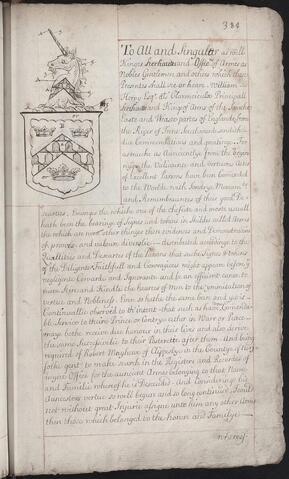 384
To All and Singuler as well
Kinges Heraultes and Officers of Armes as
Nobles Gentlemen and others which these
Presents shall see or hear. William
Hervy Esqr als Clarencieulx Principall
Herault and King of Arms of the Southe
Easte and Weast partes of England from
the River of Trent Southwards sendith
due Commendations and greeting. For
asmuche as Aunciently from the begin-
ning the Valliaunt and vertuous Actes
of Excellent Parsons have been Comended
to the Worlde with sondrey Monum.ts
and Remembrances of their good De-
seartes, Emongs the which one of the chefist and moste usuall
hath been the bearing of Signes and tokens in Shilds called Armes
the which are none other thinges then evidences and Demonstrations
of prowes and valoure diversly distributed according to the
Quallites and Desartes of the Parsons that suche Signes & tokens
of the Diligent, Faithfull and Couragious might appeare before ye
negligente Cowarde and Ignorante and be an efficient cause to
Move, Stir, and Kindle the heartes of Men to the immitation of
vertue and Noblenes. Even so hathe the same been and yet is
Continuallie observed to th'intent that such as have don Comenda-
ble Service to their Prince or Contrey either in Warr or Peace
maye bothe receive due honour in their lives and also derive
the same Successivlie to their Posteritie after them. And being
required of Robert Mayhew of Clippesby in the Countye of Nor-
folke gent. to make search in the Registers and Recordes of
my sd Office for the auncient Armes belonging to that Name
and Familie whereof he is Descended. And Considering his
Auncestours vertue so well begun and so long continued I coulde
not without great Injurie assigne unto him any other Armes
then those which belonged to the house and Familye
whereof